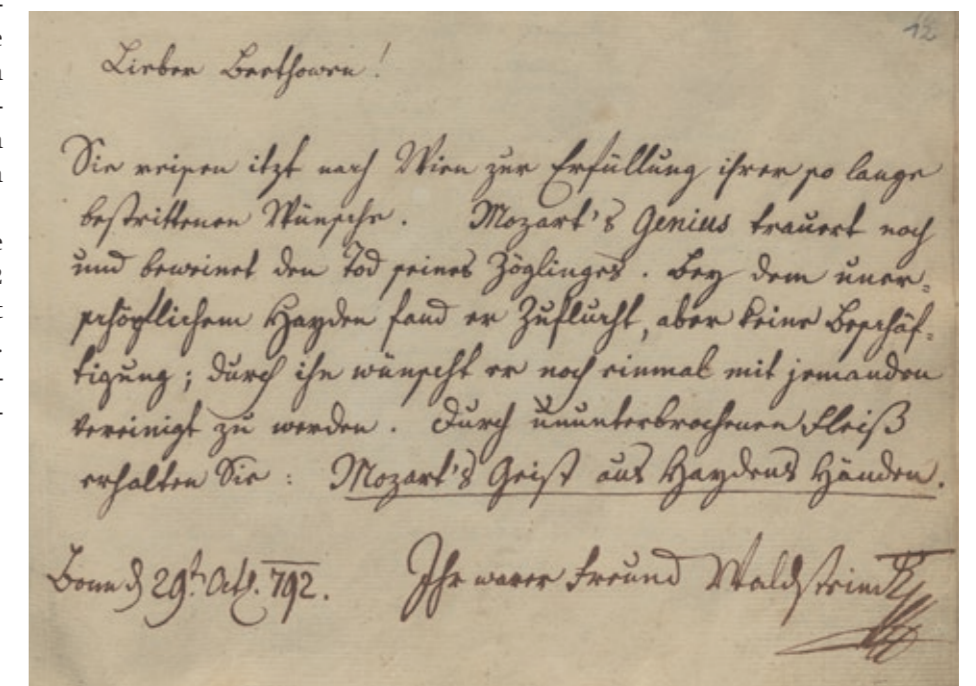 12
Lieber Beethowen!
Sie reisen itzt nach Wien zur Erfüllung ihrer so lange
bestrittenen Wünsche. Mozart's Genius trauert noch
und beweinet den Tod seines Zöglinges. Bey dem uner-
schöpflichem Hayden fand er Zuflucht, aber keine Beschäf-
tigung; durch ihn wünscht er noch einmal mit jemanden
vereinigt zu werden. Durch ununterbrochenen Fleiß
erhalten Sie: Mozart's Geist aus Haydens Händen.
Bonn d 29t. Oct. 792. Ihr warer Freund Waldstein